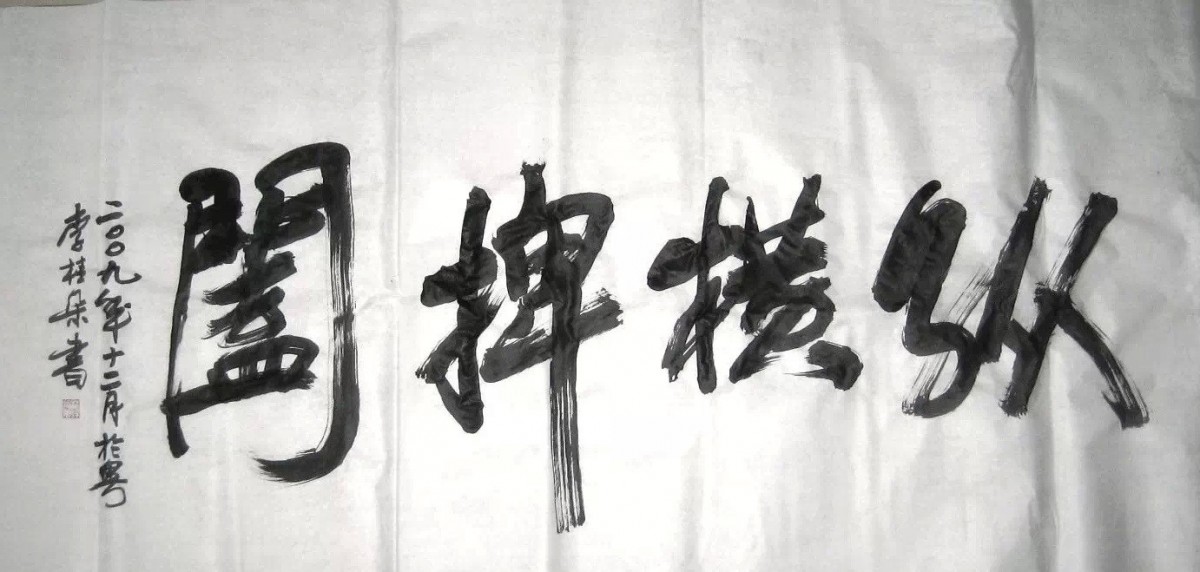 纵横捭阖
二〇〇九年十二月於粤
李桂朵書